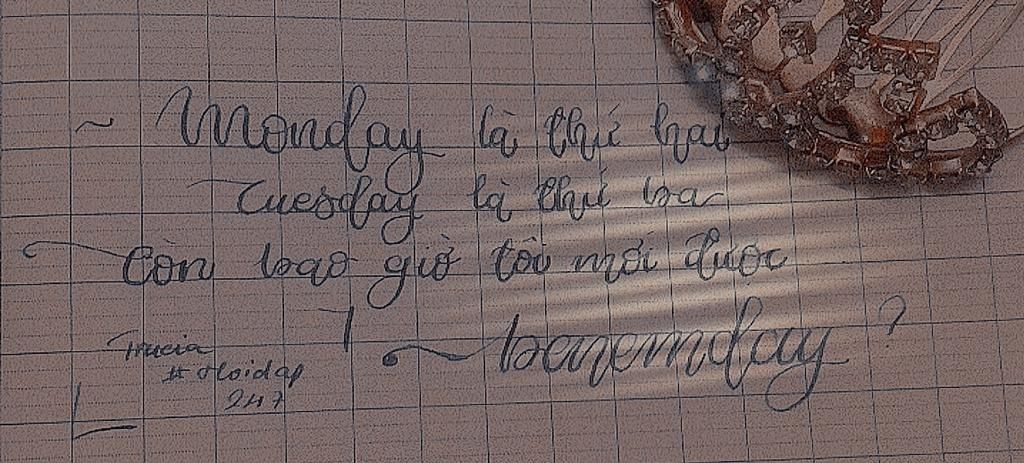 ~ Monday là thứ hai
Tuesday là thứ ba
Còn bao giờ tôi mới được
benemday ?
Trucia
# Hoidap
247